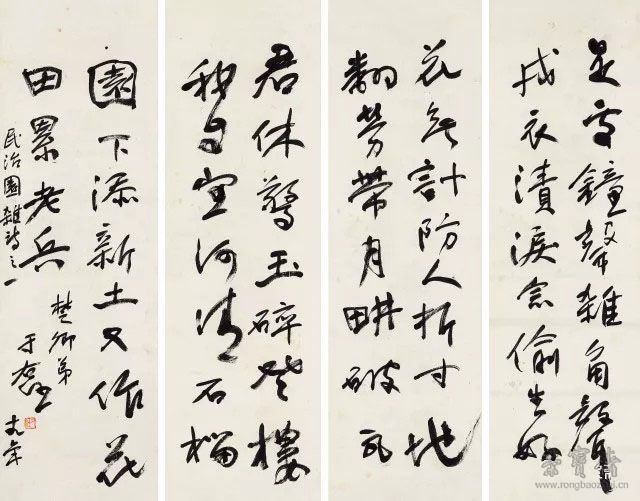 是處鐘聲雜角聲
戎衣漬淚念偷生好
花無計防人折寸地
翻勞帶月耕破瓦
君休驚玉碎登樓
我自望河清石榴
園下添新土又作花
田累老兵
民治園雜詩之一
楚卿弟
于右任
榮寶齋
www.rongbaozhai.cn